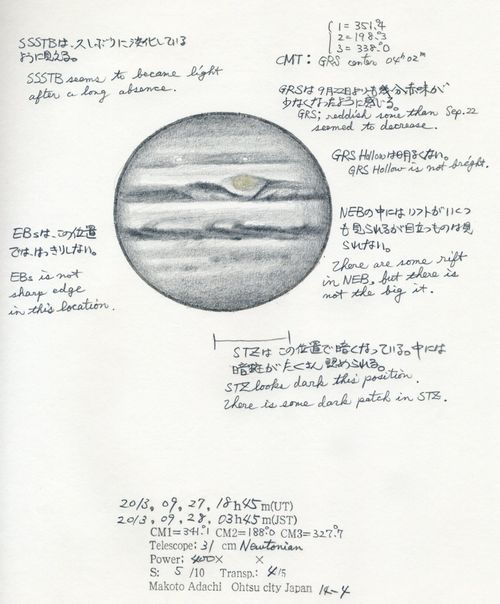 1 = 351.°4
2 = 198.°3
3 = 338.°0
CMT: GRS center 04ʰ02ᵐ
SSSTBは、久しぶりに淡化している
ように見える。
SSSTB seems to became light
after a long absence.
GRSは9月22日よりも幾分赤味が
少なくなったように感じる。
GRS; reddish some than Sep. 22
seemed to decrease.
GRS Hollowは明るくない。
GRS Hollow is not bright.
NEBの中にはリフトがいくつ
も見られるが目立つものは見
られない。
There are some rift
in NEB, but there is
not the big it.
EBsは、この位置
では、はっきりしない。
EBs is not
sharp edge
in this location.
STZはこの位置で暗くなっている。中には
暗斑がたくさん認められる。
STZ looks dark this position.
There is some dark patch in STZ.
2013, 09, 27, 18h45m(UT)
2013, 09, 28, 03h45m(JST)
CM1=341.°1 CM2=188.°0 CM3=327.°7
Telescope: 31 cm Newtonian
Power: 400× ×
S: 5 /10 Transp.: 4/5
Makoto Adachi Ohtsu city Japan 14-4